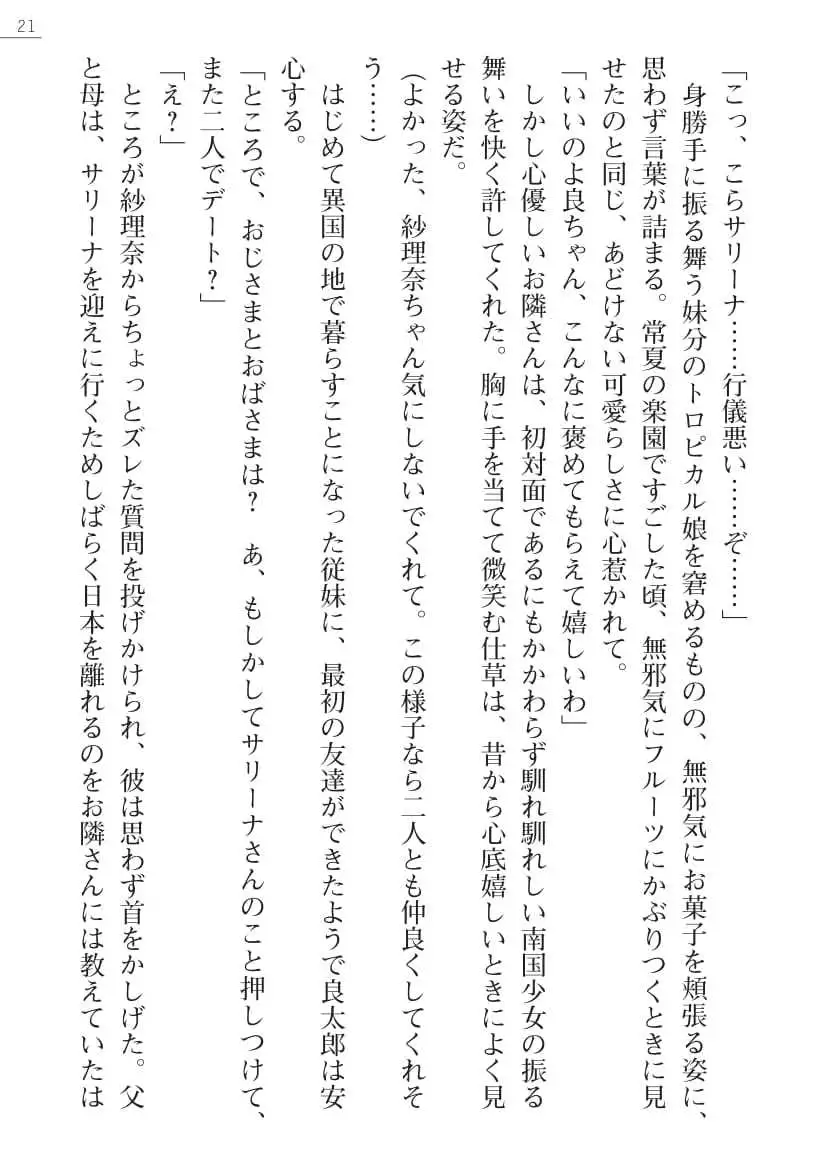 21
「こっ、こらサリーナ……行儀悪い……ぞ……」
身勝手に振る舞う妹分のトロピカル娘を窘めるものの、無邪気にお菓子を頬張る姿に、
思わず言葉が詰まる。常夏の楽園ですごした頃、無邪気にフルーツにかぶりつくときに見
せたのと同じ、あどけない可愛らしさに心惹かれて。
「いいのよ良ちゃん、こんなに褒めてもらえて嬉しいわ」
しかし心優しいお隣さんは、初対面であるにもかかわらず馴れ馴れしい南国少女の振る
舞いを快く許してくれた。胸に手を当てて微笑む仕草は、昔から心底嬉しいときによく見
せる姿だ。
（よかった、紗理奈ちゃん気にしないでくれて。この様子なら二人とも仲良くしてくれそ
う……）
はじめて異国の地で暮らすことになった従妹に、最初の友達ができたようで良太郎は安
心する。
「ところで、おじさまとおばさまは？　あ、もしかしてサリーナさんのこと押しつけて、
また二人でデート？」
「え？」
ところが紗理奈からちょっとズレた質問を投げかけられ、彼は思わず首をかしげた。父
と母は、サリーナを迎えに行くためしばらく日本を離れるのをお隣さんには教えていたは